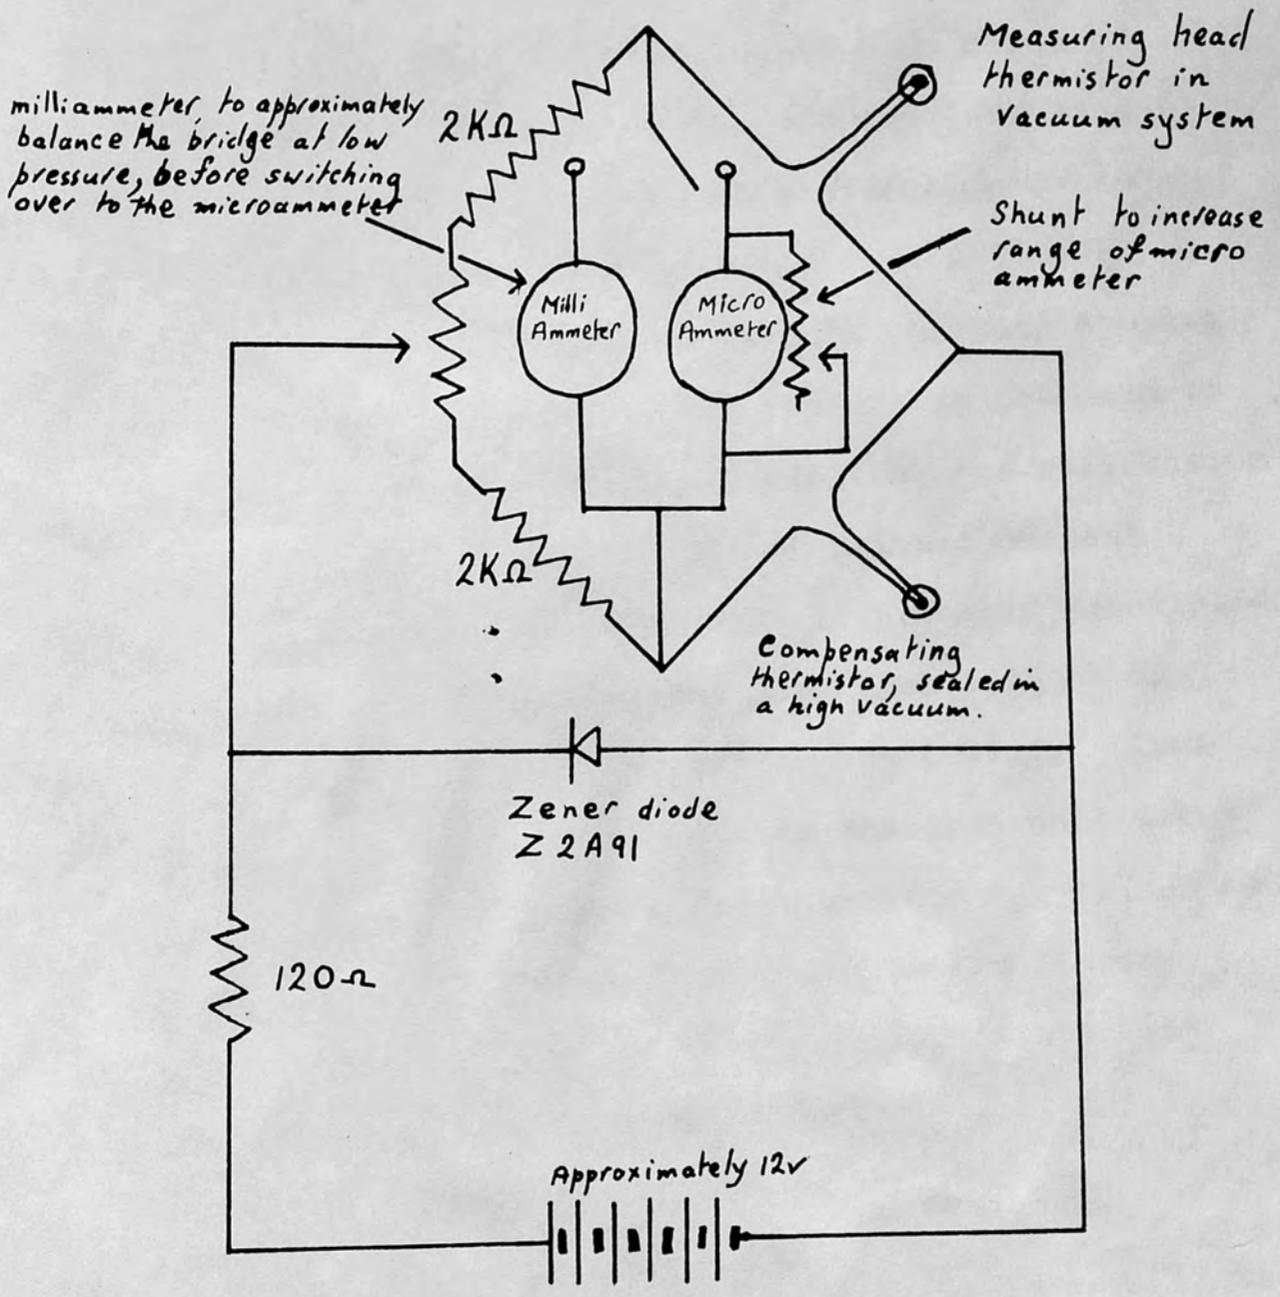 Measuring head
thermistor in
vacuum system
milliammeter, to approximately
balance the bridge at low
pressure, before switching
over to the microammeter
2KΩ
Shunt to increase
range of micro
ammeter
Milli
Ammeter
Micro
Ammeter
2KΩ
Compensating
thermistor, sealed in
a high vacuum.
Zener diode
Z2A91
120Ω
Approximately 12v